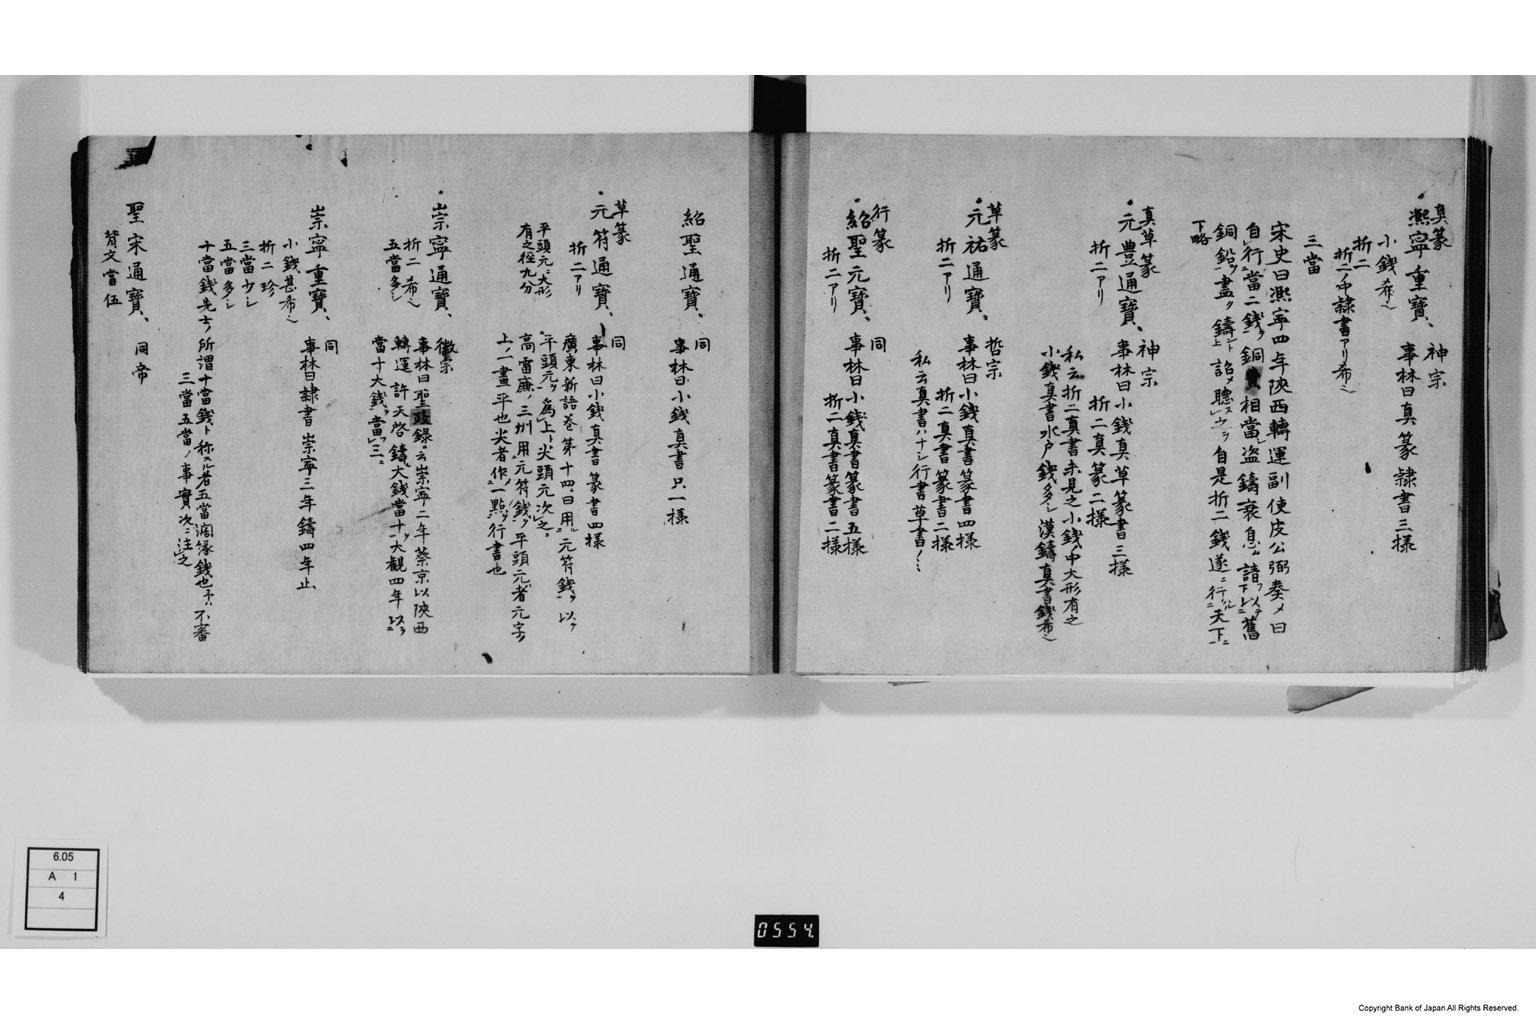 真篆
熙寧重寶、 神宗
事林曰真篆隷書三様
小銭希之
折二
折二ノ中隷書アリ希之
三當
宋史曰熙寧四年陝西轉運副使皮公弼奏メ曰
自行當二銭ヲ銅 相當 盗鑄衰息 請 以 舊
銅鉛盡 鑄 詔 聽 自是折二銭遂ニ行ル天下ニ
下略
真草篆
元豊通寶、 神宗
事林曰小銭真草篆書三様
折二アリ 折二真篆二様
私云折二真書未見之小銭ノ中大形有之
小銭真書水戸銭多シ漢鑄真書銭希之
草篆
元祐通寶、 哲宗
事林曰小銭真書篆書四様
折二アリ 折二真書篆書二様
私云真書ハナシ行書草書ノ
行篆
紹聖元寶、 同
事林曰小銭真書篆書五様
折二アリ 折二真書篆書二様
紹聖通寶、 同
事林曰小銭真書只一様
草篆
元符通寶、 同
事林曰小銭真書篆書四様
折二アリ
廣東新語巻第十四曰用元符銭ヲ以
平頭元ヲ為上ト尖頭元次之
平頭元ニ大形
有之径九分
高雷廉ノ三州用元符銭ヲ平頭元者元字ノ
上ノ一畫平也尖者作一點ヲ行書也
崇寧通寶、 徽宗
事林曰聖 錄ニ云崇寧二年蔡京以陝西
折二希之
五當多シ
轉運許天啓鑄大銭當十ヲ大観四年以
當十大銭ヲ當三ニ
崇寧重寶、 同
事林曰隷書崇寧三年鑄四年止
小銭甚希之
折二珍
三當少シ
五當多シ
十當銭先士ノ所謂十當銭ト称スル者五當濶縁銭也予ハ不審
三當五當ノ事實次ニ注之
聖宋通寶、 同帝
背文當伍
6.05
A 1
4
0554.
Copyright Bank of Japan All Rights Reserved.